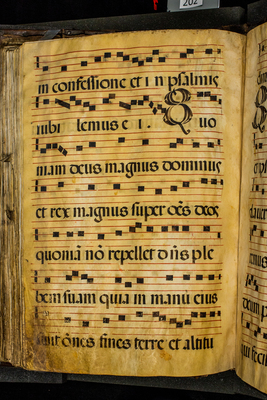 202
in confessione et in psalmis
iubi lemus e i. Quo
niam deus magnus dominus
et rex magnus super oēs deos
quoniā nō repellet dn̄s ple
bem suam quia in manu eius
sunt oēs fines terre et altitu